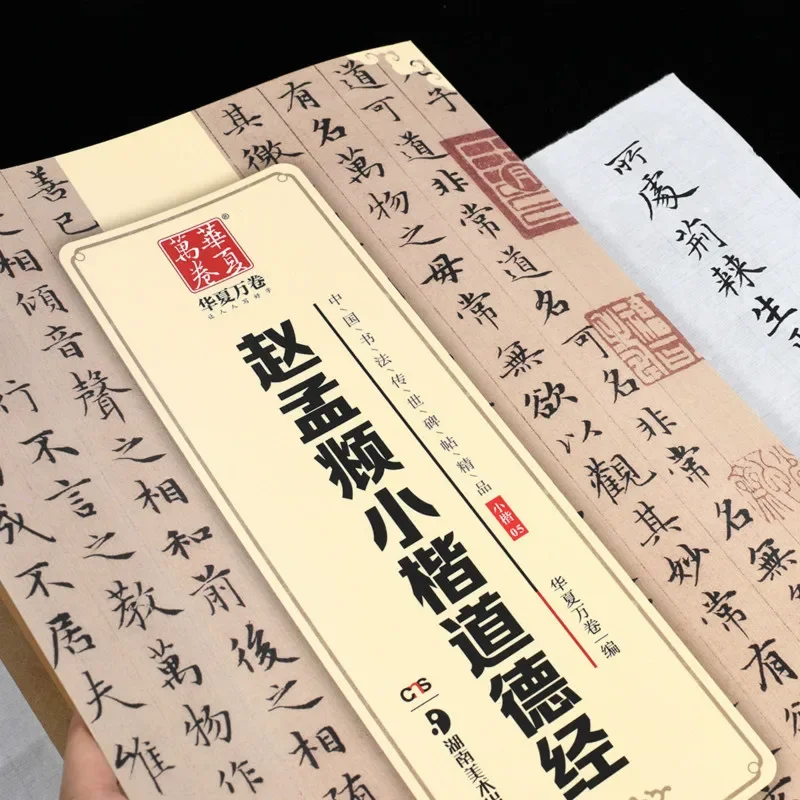 所處荊棘生
道可道非常道名可名非常名無
有名萬物之母常無欲以觀其妙常有
其徼
善已
相傾音聲之相和前後之相
行不言之教萬物作
不居夫惟
萬卷華夏
®
华夏万卷
让人人写好字
中国书法传世碑帖精品
小楷05
赵孟頫小楷道德经
华夏万卷 编
湖南美术